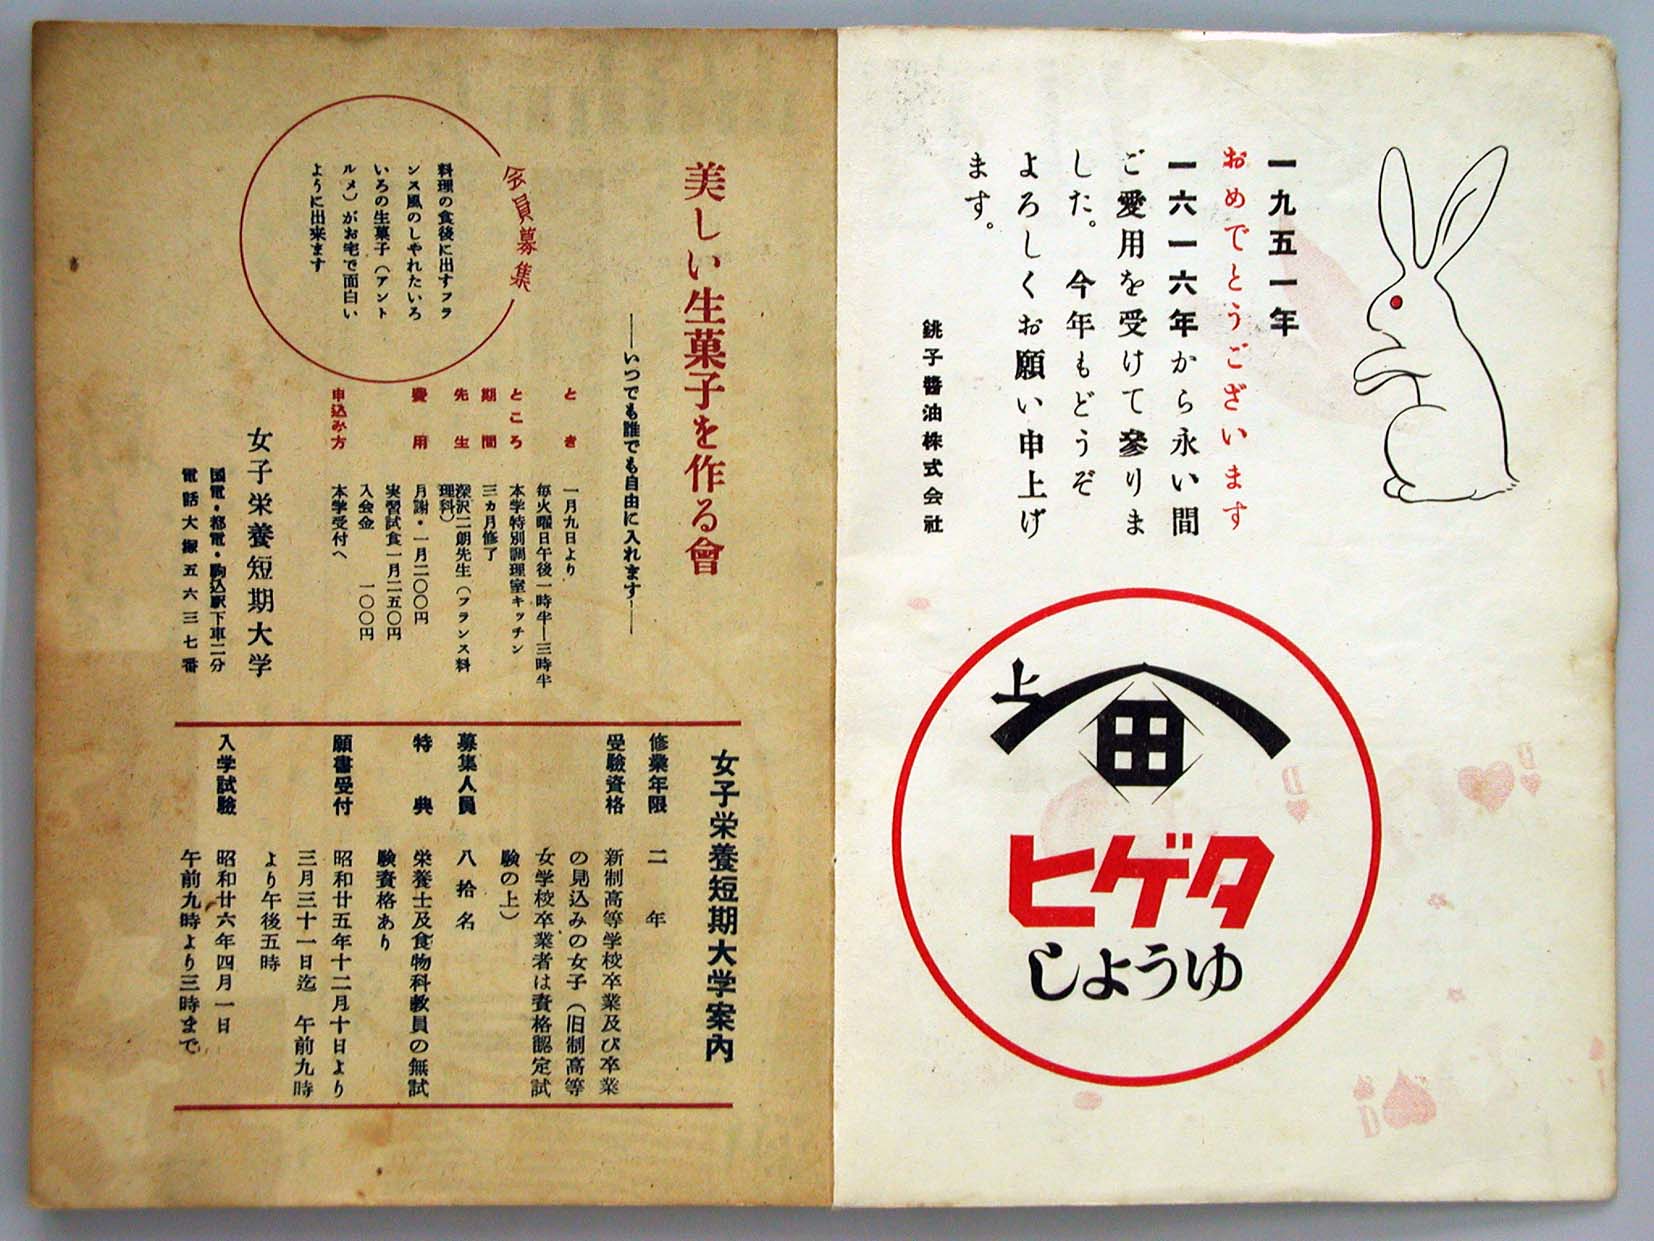 一九五一年
おめでとうございます
一六一六年から永い間
ご愛用を受けて參りま
した。今年もどうぞ
よろしくお願い申上げ
ます。
銚子醬油株式会社
上
田
ヒゲタ
しょうゆ
美しい生菓子を作る會
──いつでも誰でも自由に入れます──
会員募集
料理の食後に出すフラ
ンス風のしやれたいろ
いろの生菓子（アント
ルメ）がお宅で面白い
ように出来ます
とき　一月九日より
毎火曜日午後一時半─三時半
ところ　本学特別調理室キッチン
期間　三カ月修了
先生　深沢二朗先生（フランス料
理科）
費用　月謝・一月二〇〇円
実習試食一月二五〇円
入会金　一〇〇円
申込み方　本学受付へ
女子栄養短期大学
国電・都電・駒込駅下車二分
電話大塚五六三七番
女子栄養短期大学案内
修業年限　二年
受驗資格　新制高等学校卒業及び卒業
の見込みの女子（旧制高等
女学校卒業者は資格認定試
験の上）
募集人員　八拾名
特典　栄養士及食物科教員の無試
験資格あり
願書受付　昭和廿五年十二月十日より
三月三十一日迄　午前九時
より午後五時
入学試驗　昭和廿六年四月一日
午前九時より三時まで